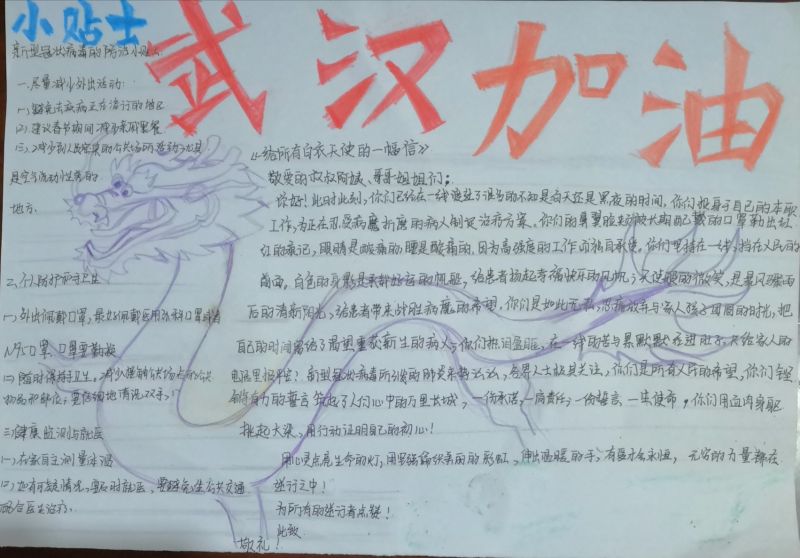 小贴士
武汉加油
新型冠状病毒的预防小贴士
一.尽量减少外出活动
(一).避免去疾病正在流行的地区
(二).建议春节期间减少亲戚聚餐
(三).减少到人员密集的公共场所活动
是空气流动性差的
地方.
二.个人防护和手卫生
(一)外出佩戴口罩,最好佩戴医用外科口罩或者
N95口罩,口罩要勤换
(二)随时保持手卫生。减少接触公共场所的公共
物品和部位;
三.健康监测与就医
(一).在家自主测量体温
(二).如有可疑情况,要及时就医,要避免坐公共交通
配合医生治疗.
《给所有白衣天使的一幅信》
敬爱的叔叔阿姨、哥哥姐姐们:
你好!此时此刻,你们已经在一线度过了
的时间,你们投身于自己的本职
工作,为正在忍受病魔折磨的病人制定治疗方案。你们的鼻翼脸颊被长期配戴的口罩勒出红
红的痕记,眼睛是酸痛的,腰是酸痛的,因为高强度的工作而独自承受,你们坚持在一线,挡在人民的
前面,白色的身影是承载好运的帆船,给患者扬起幸福快乐的风帆;天使般的微笑,是暴风骤雨
后的清新阳光,给患者带来战胜病魔的希望,你们是如此无私,
放弃与家人孩子团圆的时光,把
自己的时间留给了渴望重获新生的病人;你们热泪盈眶,在一线的苦与累默默
给家人的
电话里报平安?新型冠状病毒所引发的肺炎来势汹汹,各界人士极其关注,你们是所有人
的希望,你们
有力的誓言筑起了人们心中的万里长城,一份承诺,一肩责任,一份誓言,一生使命,你们用血肉身躯
挑起大梁,用行动证明自己的初心!
用心灵点亮生命的灯,用坚强编织美丽的彩虹,伸出温暖的手,有医才会永恒,无穷的力量都在
逆行之中!
为所有的逆行者点赞!
此致
敬礼!